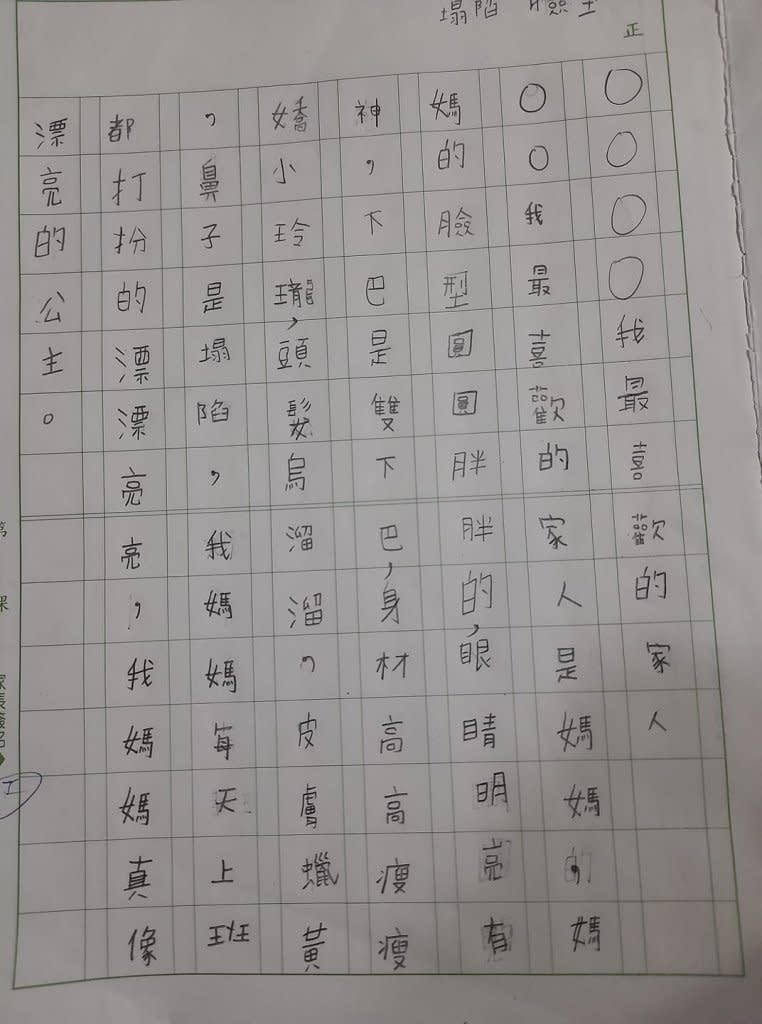 塌陷 臉型
正
○○○○我最喜歡的家人
○○我最喜歡的家人是媽媽，媽
媽的臉型圓圓胖胖的，眼睛明亮有
神，下巴是雙下巴，身材高高瘦瘦
嬌小玲瓏，頭髮烏溜溜，皮膚蠟黃
，鼻子是塌陷，我媽媽每天上班
都打扮的漂漂亮亮，我媽媽真像
漂亮的公主。
家長簽名